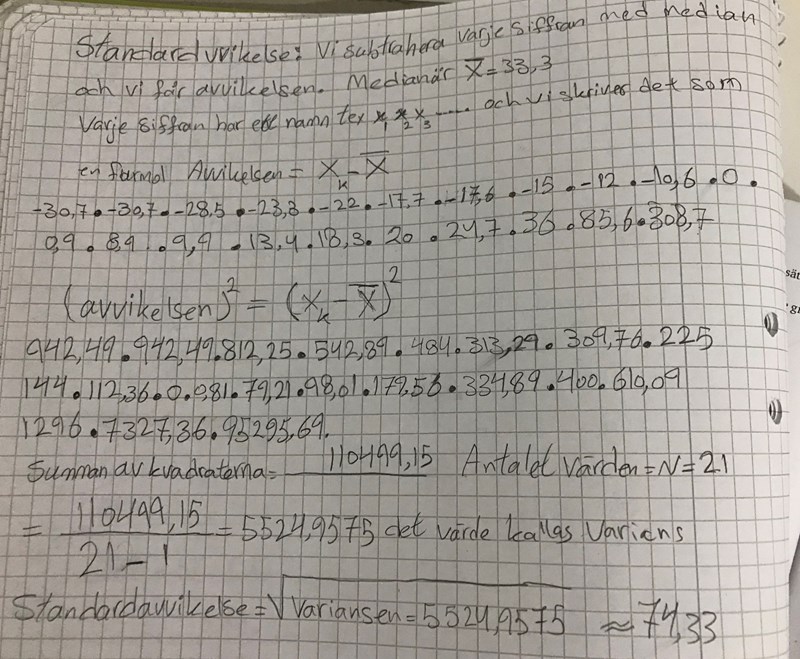 Standard vvikelse: Vi subtrahera varje siffran med median
och vi får avvikelsen. Medianär x̄ = 33,3
Varje siffran har ett namn tex x₁ x₂ x₃ ...... och vi skriver det som
en formol Avvikelsen = xₖ - x̄
-30,7 • -30,7 • -28,5 • -23,3 • -22 • -17,7 • -17,6 • -15 • -12 • -10,6 • 0 •
0,9 • 8,9 • 9,9 • 13,4 • 18,3 • 20 • 24,7 • 36 • 85,6 • 308,7
(avvikelsen)² = (xₖ - x̄)²
942,49 • 942,49 • 812,25 • 542,89 • 484 • 313,29 • 309,76 • 225
144 • 112,36 • 0 • 0,81 • 79,21 • 98,01 • 179,56 • 334,89 • 400 • 610,09
1296 • 7327,36 • 95295,69.
Summan av kvadraterna = 110499,15 Antalet värden = N = 21
= 110499,15 / 21 - 1 = 5524,9575 det värde kallas Varians
Standardavvikelse = √Variansen = 5524,9575 ≈ 74,33
sät